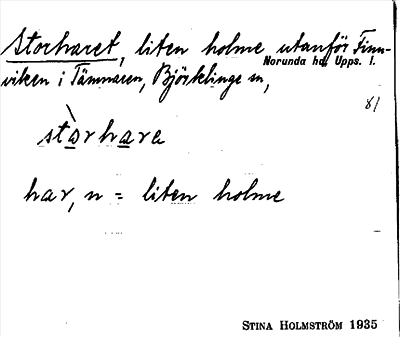 Storharet, liten holme utanför Finn-
viken i Tämnaren, Björklinge sn,
Norunda hd Upps. l.
81
stårhare
har, n = liten holme
STINA HOLMSTRÖM 1935